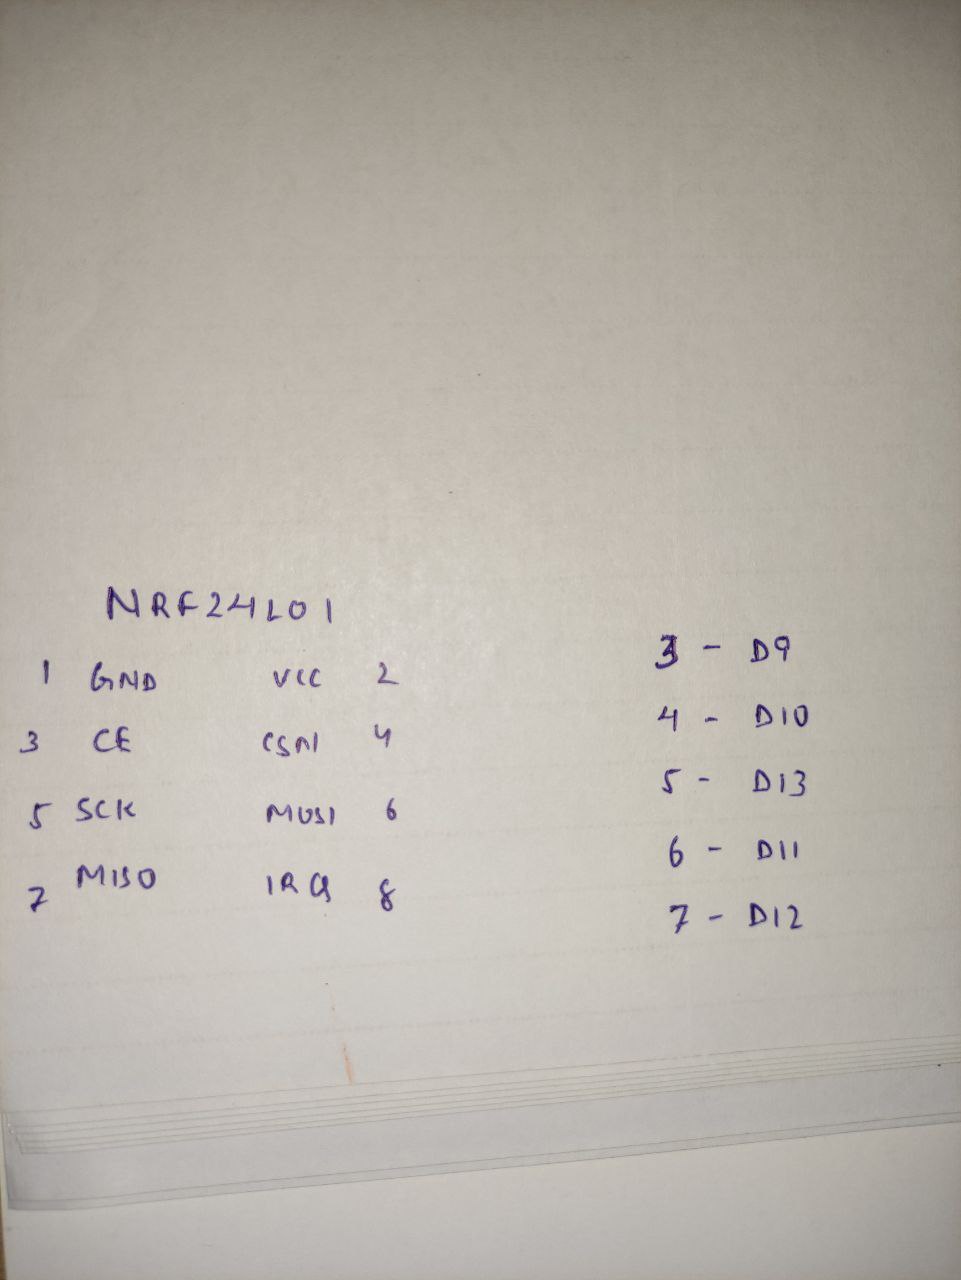 NRF24L01
1 GND VCC 2
3 CE CSN 4
5 SCK MOSI 6
7 MISO IRQ 8
3 - D9
4 - D10
5 - D13
6 - D11
7 - D12